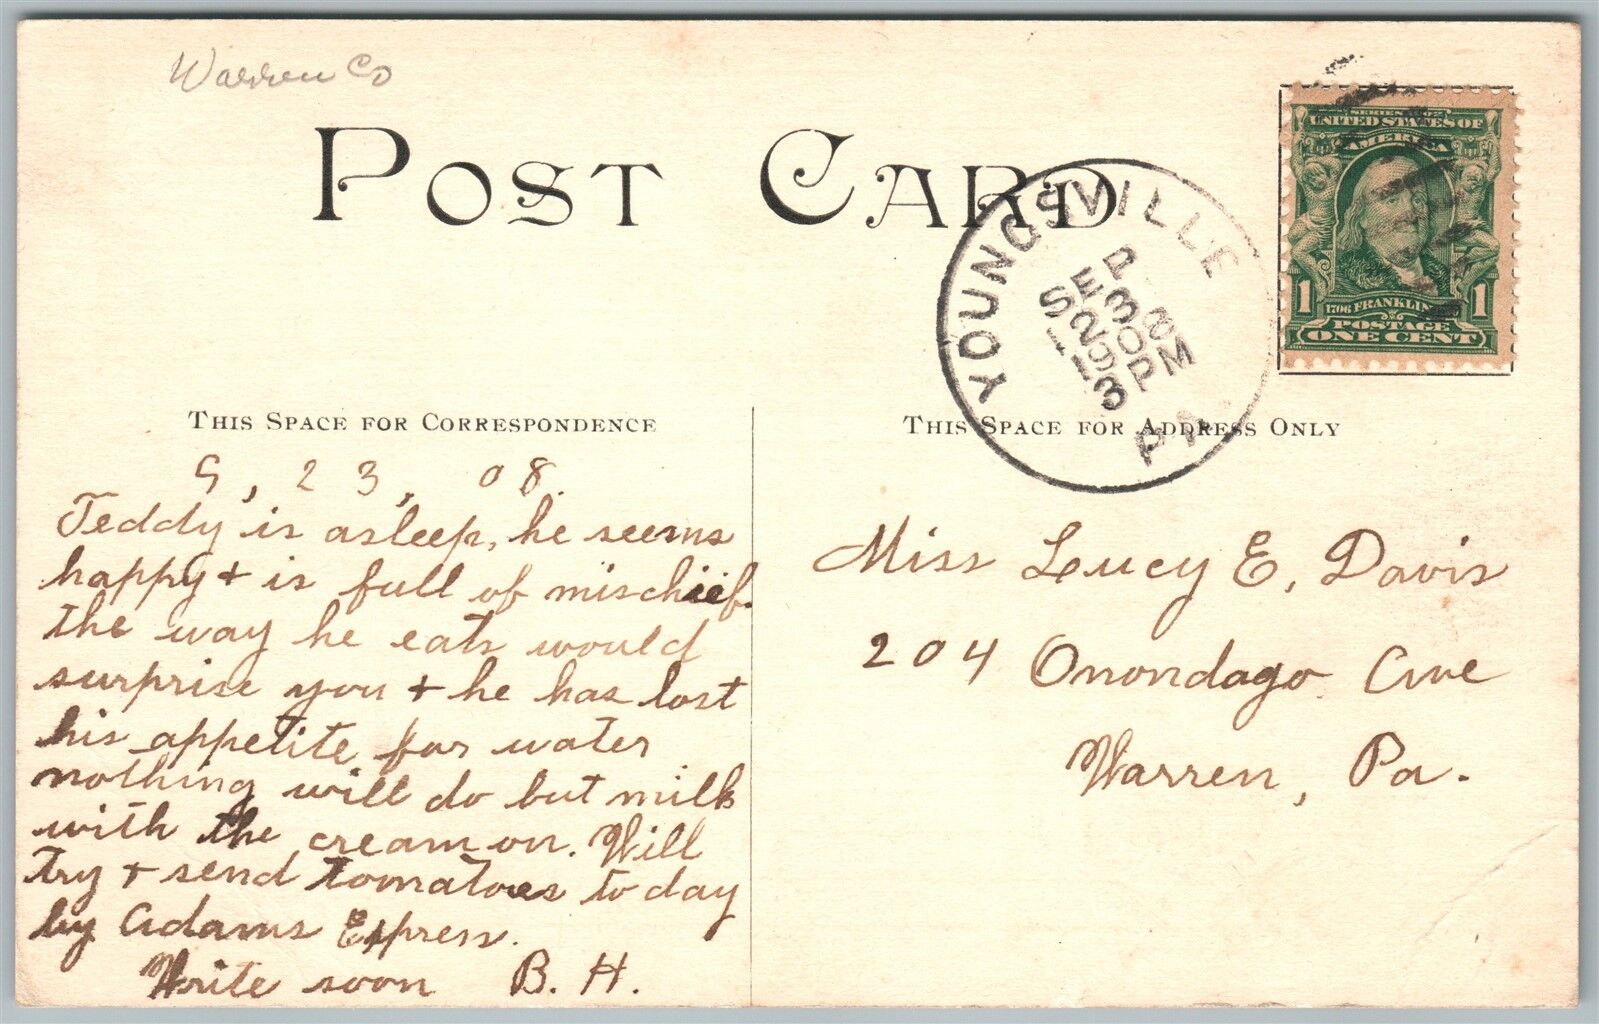 Warren Co
POST CARD
SERIES 1902
UNITED STATES OF
AMERICA
1 1
1706 FRANKLIN
POSTAGE
ONE CENT
YOUNGSVILLE
SEP
23
1908
3 PM
PA.
THIS SPACE FOR CORRESPONDENCE
THIS SPACE FOR ADDRESS ONLY
9, 23, 08.
Teddy is asleep, he seems
happy + is full of mischief.
the way he eats would
surprise you + he has lost
his appetite for water
nothing will do but milk
with the cream on. Will
try + send tomatoes to day
by Adams Express.
Write soon B. H.
Miss Lucy E, Davis
204 Onondago Ave
Warren, Pa.